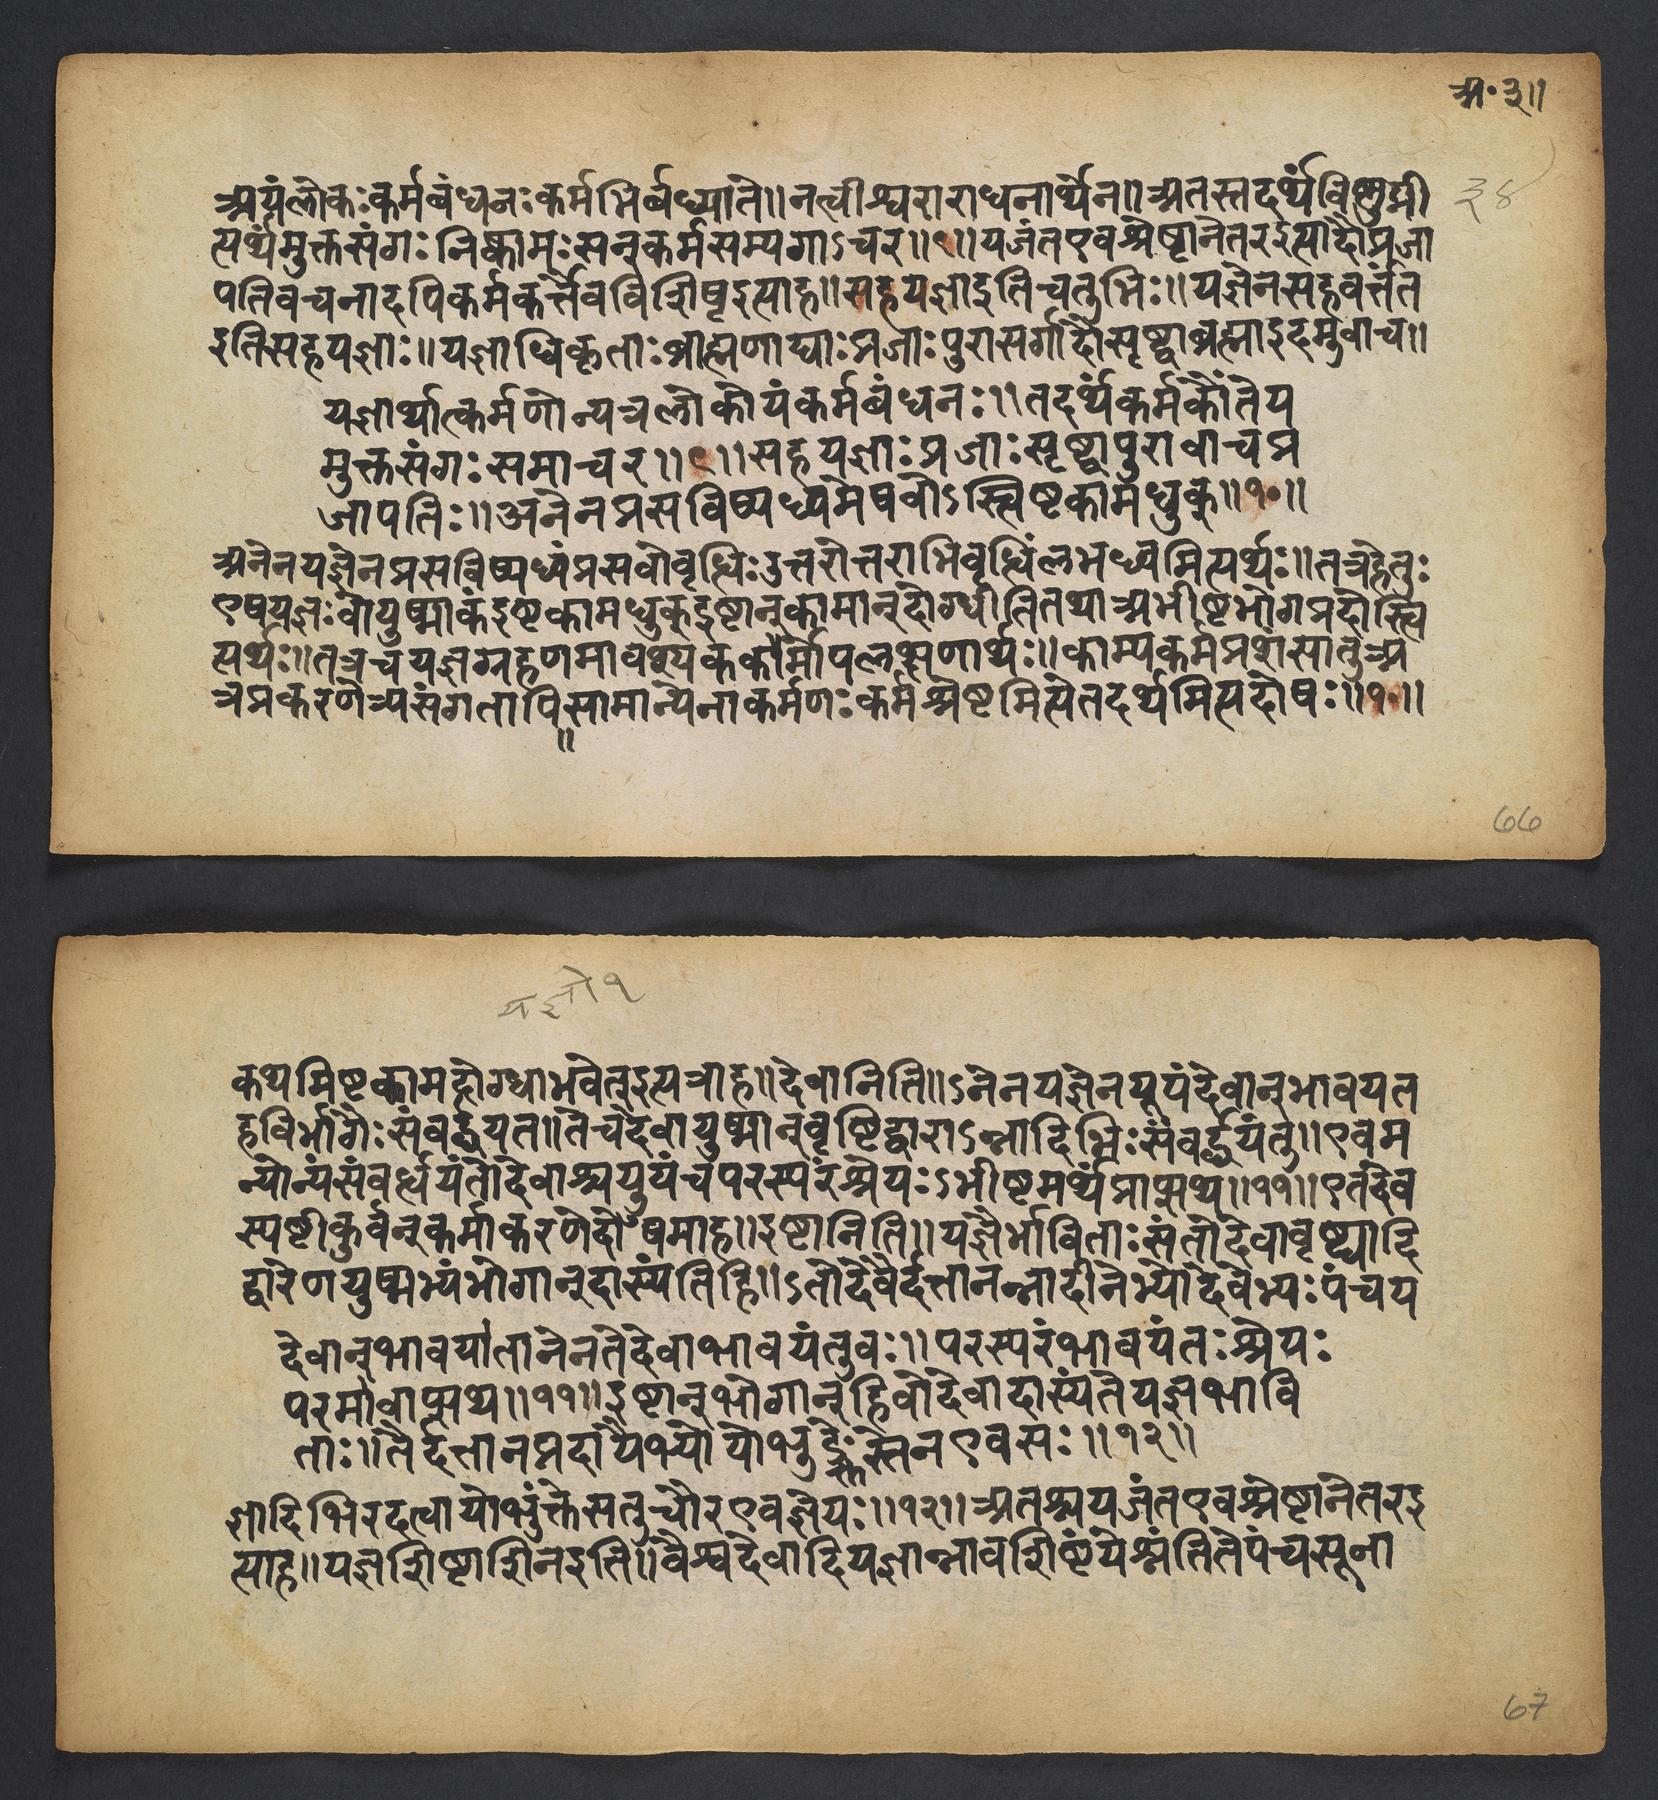 अ॰३॥
अयंलोकःकर्मबंधनःकर्मभिर्बध्यांते॥नत्वीश्वराराधनार्थेन॥अतस्तदर्थंविष्णुप्री
३४
त्यर्थंमुक्तसंगःनिष्कामःसन्कर्मसम्यगाऽचर॥९॥यजंतएवश्रेष्टानेतरइत्यादौप्रजा
पतिवचनादपिकर्मकर्त्तैवविशिषृइत्याह॥सहयज्ञाइतिचतुभिः॥यज्ञेनसहवर्त्तंत
इतिसहयज्ञाः॥यज्ञाधिकृताःब्राह्मणाद्याःप्रजाःपुरासर्गादौसृष्ट्वाब्रह्माइदमुवाच॥
यज्ञार्थात्कर्मणोन्यत्रलोकोयंकर्मबंधनः॥तदर्थंकर्मकौंतेय
मुक्तसंगःसमाचर॥९॥सहयज्ञाःप्रजाःसृष्ट्वापुरोवाचप्र
जापतिः॥अनेनप्रसविष्यध्वमेषवोऽस्त्विष्टकामधुक्॥१०॥
अनेनयज्ञेनप्रसविष्यध्वंप्रसवोवृद्धिःउत्तरोत्तराभिवृद्धिंलभध्वमित्यर्थः॥तत्रहेतुः
एषयज्ञःवोयुष्माकंइष्टकामधुक्इष्टान्कामान्दोग्धीतितथाअभीष्टभोगप्रदोस्त्वि
त्यर्थः॥तत्रचयज्ञग्रहणमावश्यककर्मोपलक्षणार्थः॥काम्यकर्मप्रशंसातुअ
त्रप्रकरणेअसंगतापिसामान्येनाकर्मणःकर्मश्रेष्टमित्येतदर्थमित्यदोषः॥१०॥
॥
66
यज्ञो१
कथमिष्टकामदोग्धाभवेत्इत्यत्राह॥देवानिति॥ऽनेनयज्ञेनयूयंदेवान्भावयत
हविर्भागैःसंवर्द्धयत॥तेचदेवायुष्मान्वृष्टिद्वाराऽन्नादिभिःसंवर्द्धयंतु॥एवम
न्योन्यंसंवर्ध्धयंतोदेवाश्चयुयंचपरस्परंश्रेयःऽभीष्टमर्थंप्राप्स्यथ॥११॥एतदेव
स्पष्टीकुर्वन्कर्माकरणेदोषमाह॥इष्टानिति॥यज्ञैर्भाविताःसंतोदेवावृष्ट्यादि
द्वारेणयुष्मभ्यंभोगान्दास्यंतिहि॥ऽतोदेवैर्दत्तानन्नादीनेभ्योदेवेभ्यःपंचय
देवान्भावयतानेनतेदेवाभावयंतुवः॥परस्परंभावयंतःश्रेयः
परमवाप्स्यथ॥११॥इष्टान्भोगान्हिवोदेवादास्यंतेयज्ञभावि
ताः॥तैर्दत्तानप्रदायैभ्योयोभुङ्क्तेस्तेनएवसः॥१२॥
ज्ञादिभिरदत्वायोभुंक्तेसतुचौरएवज्ञेयः॥१२॥अतश्चयजंतएवश्रेष्टानेतरइ
त्याह॥यज्ञशिष्टाशिनइति॥वैश्वदेवादियज्ञान्नावशिष्टंयेश्नंतितेपंचसूना
67